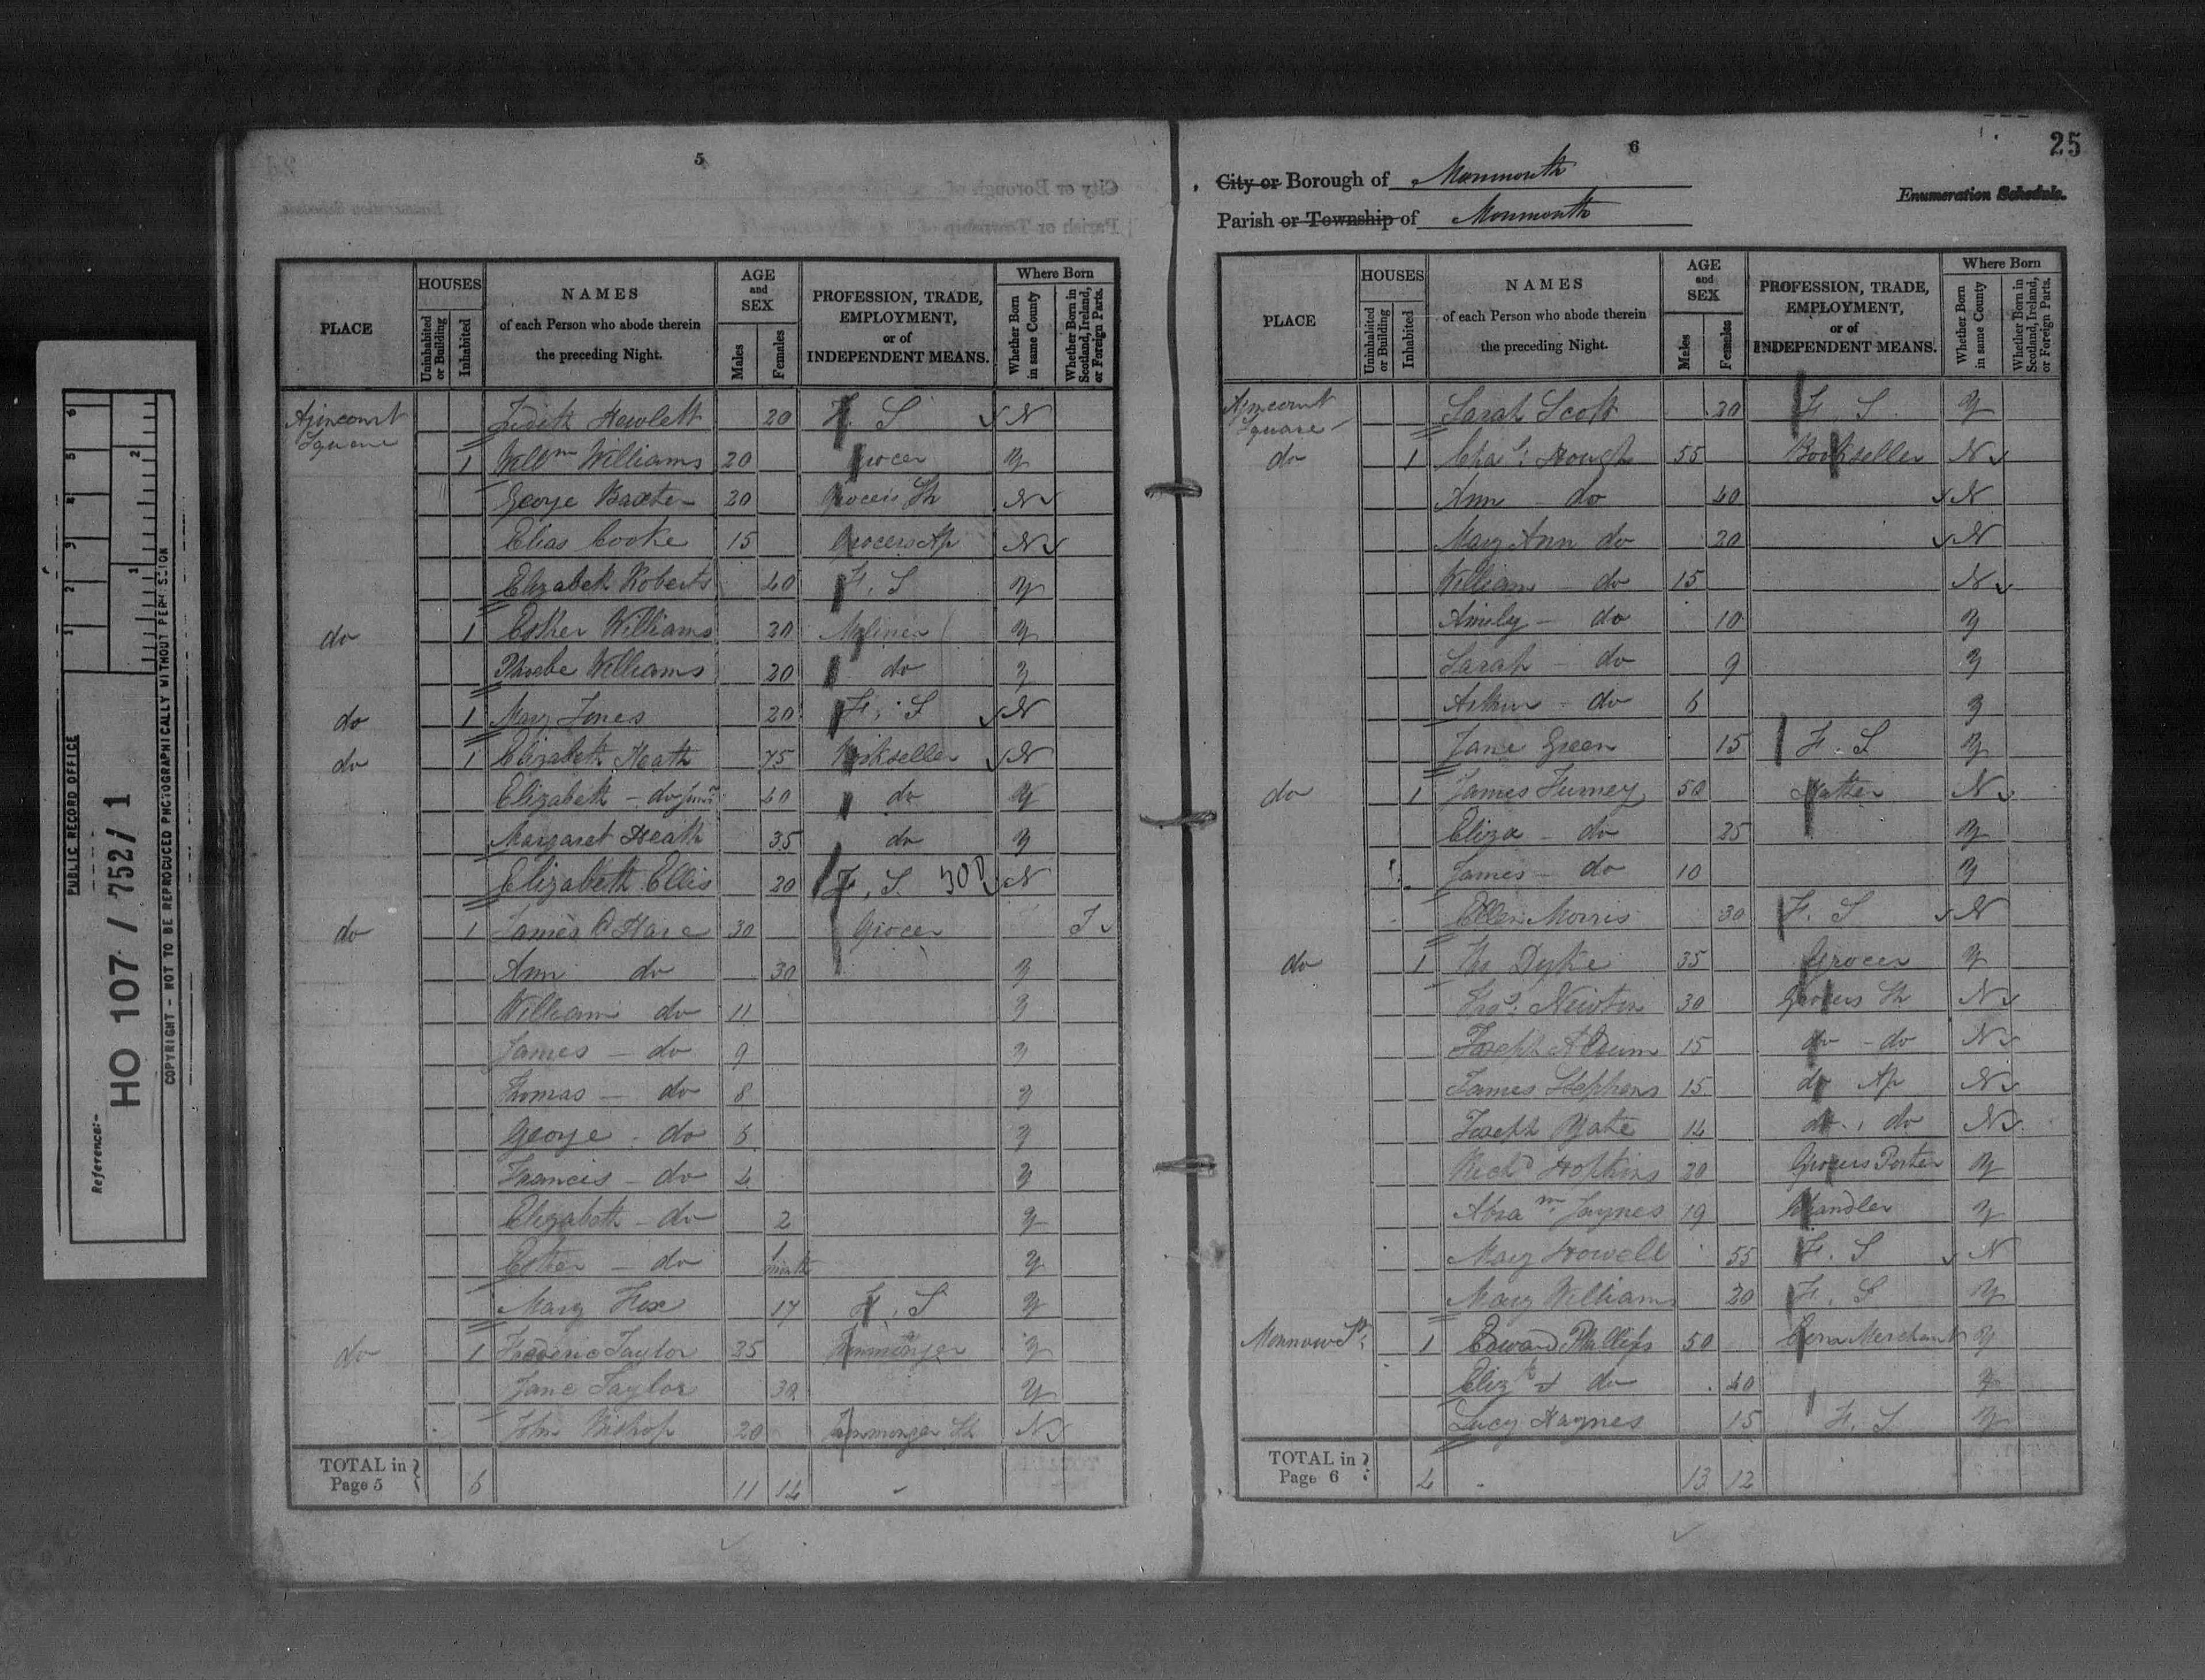 PUBLIC RECORD OFFICE
Reference:-
HO 107 / 752 / 1
COPYRIGHT - NOT TO BE REPRODUCED PHOTOGRAPHICALLY WITHOUT PERMISSION
1 2 3 4 5 6
1 2
5
PLACE
HOUSES
Uninhabited or Building
Inhabited
NAMES
of each Person who abode therein
the preceding Night.
AGE
and
SEX
Males
Females
PROFESSION, TRADE,
EMPLOYMENT,
or of
INDEPENDENT MEANS.
Where Born
Whether Born in same County
Whether Born in Scotland, Ireland, or Foreign Parts.
Agincourt Square Judith Hewlett 20 F. S N
1 Willm Williams 20 Grocer Y
George Baxter 20 Grocers Sh N
Elias Cooke 15 Grocers Ap N
Elizabeth Roberts 40 F. S Y
do 1 Esther Williams 20 Y
Phoebe Williams 20 do Y
do 1 Mary Jones 20 F. S N
do 1 Elizabeth Heath 75 Bookseller N
Elizabeth - do junr 40 do Y
Margaret Heath 35 do Y
Elizabeth Ellis 20 F. S. N
do 1 James O'Hare 30 Grocer I
Ann do 30 Y
William do 11 Y
James - do 9 Y
Thomas - do 8 Y
George - do Y
Francis - do 4 Y
Elizabeth - do 2 Y
Esther - do 1 month Y
Mary 17 F. S Y
do 1 Frederic Taylor 25 Ironmonger Y
Jane Taylor 30 Y
John Bishop 20 Ironmonger Sh N
TOTAL in Page 5 6 11 14
6
25
City or Borough of Monmouth
Parish or Township of Monmouth
Enumeration Schedule.
PLACE
HOUSES
Uninhabited or Building
Inhabited
NAMES
of each Person who abode therein
the preceding Night.
AGE
and
SEX
Males
Females
PROFESSION, TRADE,
EMPLOYMENT,
or of
INDEPENDENT MEANS.
Where Born
Whether Born in same County
Whether Born in Scotland, Ireland, or Foreign Parts.
Agincourt Square Sarah Scott 20 F. S. Y
do 1 Chas: Hough 55 Bookseller N
Ann - do 40 N
Mary Ann do 20 N
William - do 15 N
Amily - do 10 Y
Sarah - do 9 Y
Arthur - do 6 Y
Jane Green 15 F. S. Y
do 1 James Furney 50 Hatter N
Eliza - do 25 Y
James - do 10 Y
Ellen Morris 30 F. S N
do 1 Dyke 35 Grocer Y
Thos. Newton 30 Grocers Sh N
Joseph 15 do - do N
James Stephens 15 do Ap N
Joseph Yate 14 do do N
Richd Hopkins 20 Grocers Porter Y
Abram Jaynes 19 Chandler Y
Mary Howell 55 F. S N
Mary Williams 20 F. S Y
Monnow St. 1 Edward Phillips 50 Corn Merchant Y
Elizth do 40 Y
Lucy Haynes 15 F. S Y
TOTAL in Page 6 4 13 12